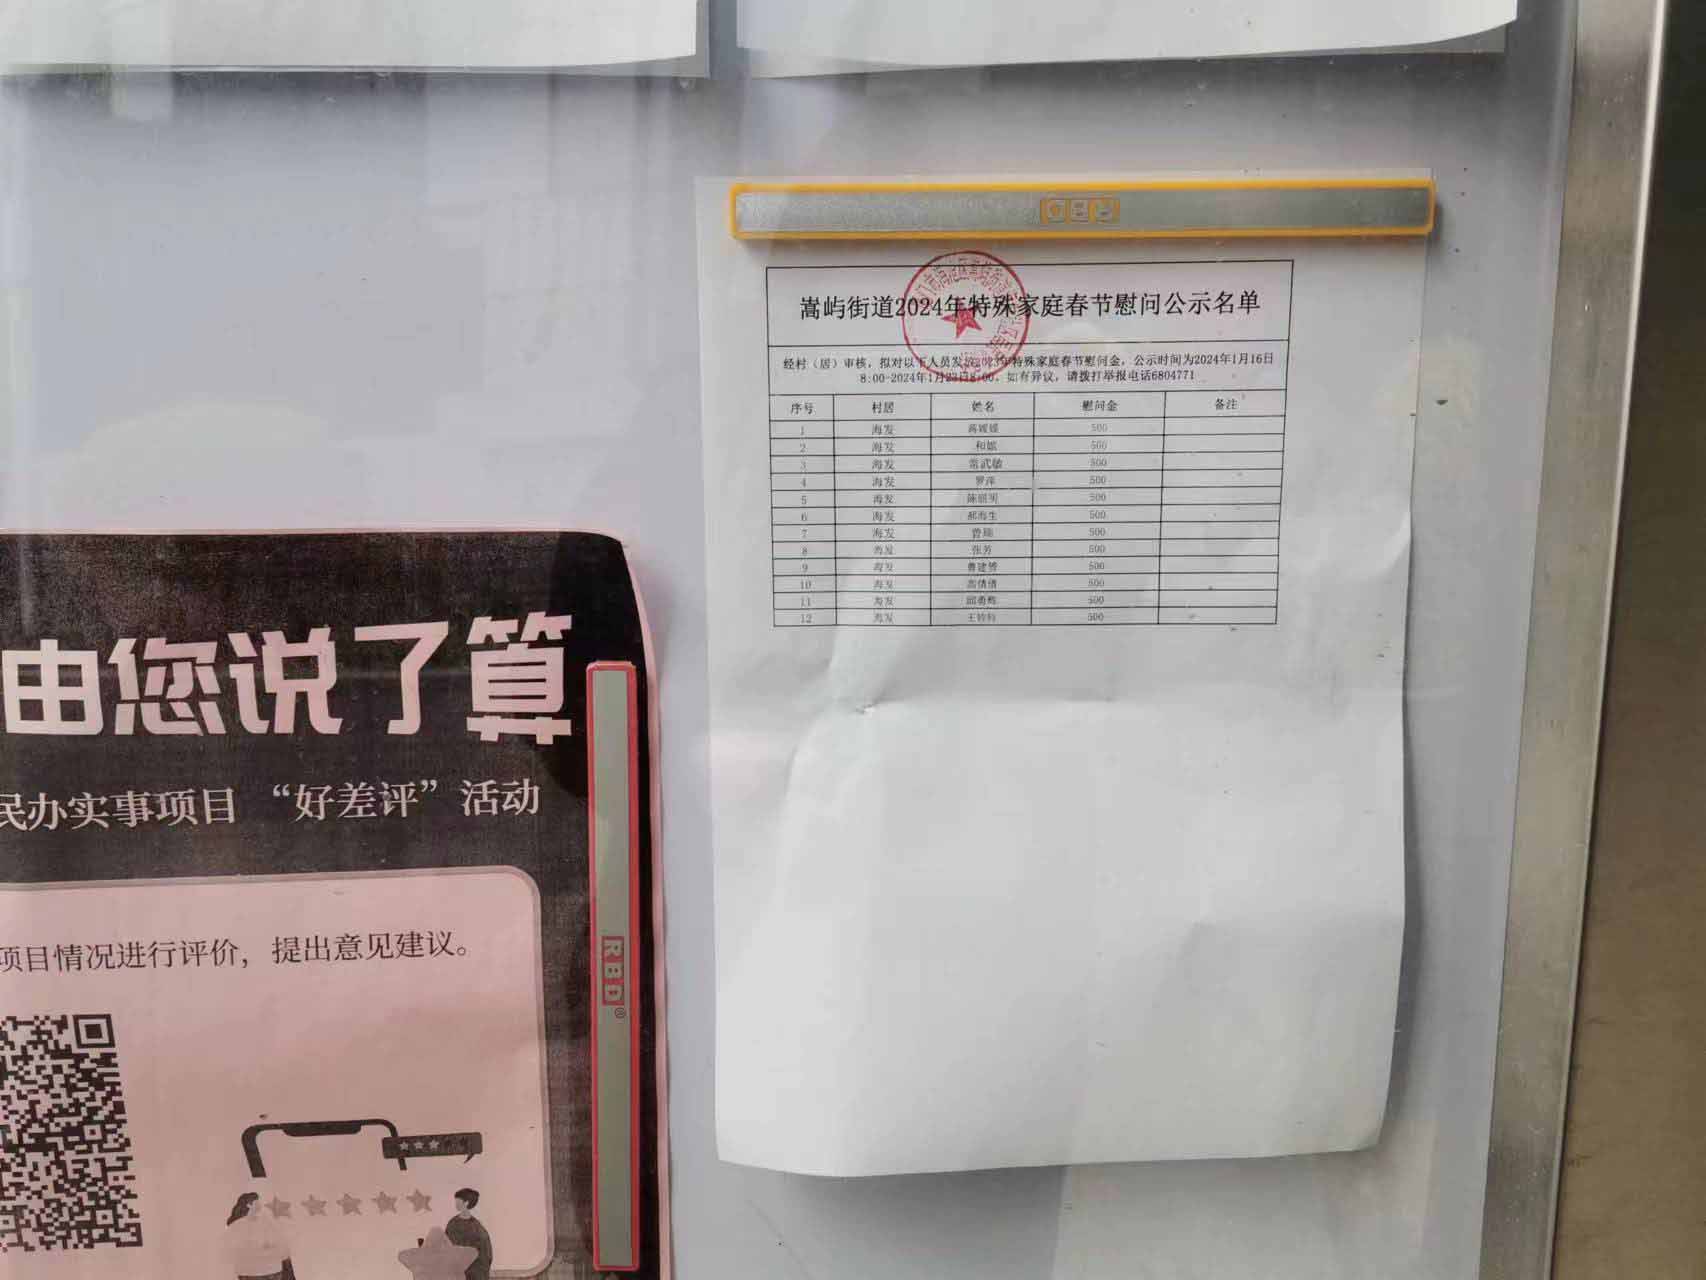 嵩屿街道2024年特殊家庭春节慰问公示名单
经村（居）审核，拟对以下人员发放2023年特殊家庭春节慰问金，公示时间为2024年1月16日
8:00-2024年1月23日8:00，如有异议，请拨打举报电话6804771
序号 村居 姓名 慰问金 备注
1 海发 500
2 海发 500
3 海发 常武敏 500
4 海发 罗萍 500
5 海发 陈丽明 500
6 海发 郝海生 500
7 海发 500
8 海发 张芳 500
9 海发 500
10 海发 高倩倩 500
11 海发 邱勇辉 500
12 海发 500
由您说了算
民办实事项目 “好差评”活动
项目情况进行评价，提出意见建议。
RBD®